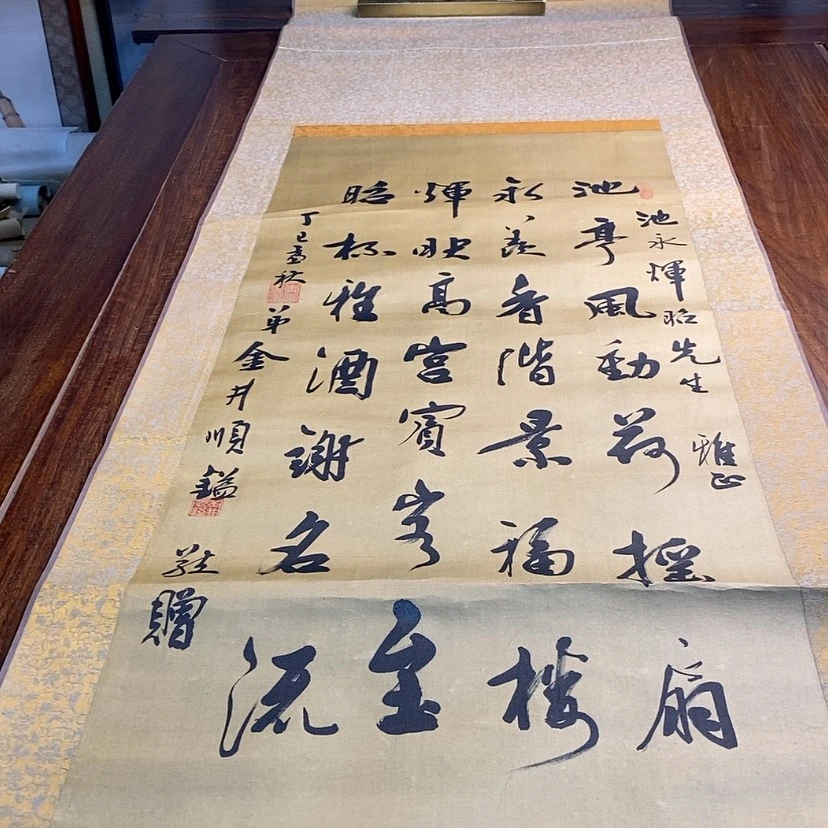 池永輝昭先生 雅正
池亭風動荷搖扇
永羨香階景福樓
輝映高宮賓客至
昭杯雅酒謝名流
丁巳孟秋 弟金井順鎰 敬贈